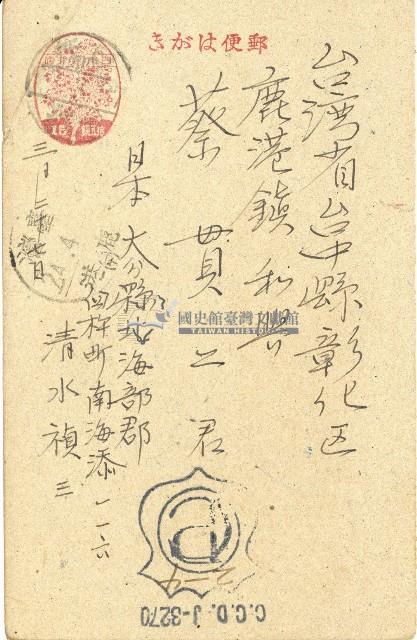 郵便はがき
台湾省台中縣彰化区
鹿港鎮和興
蔡貫之君
日本大分縣北海部郡
臼杵町南海添一一六
清水禎三
三月二十七日
15
24.4
國史館臺灣文獻館
TAIWAN HISTORICA
C.C.D. J-3270